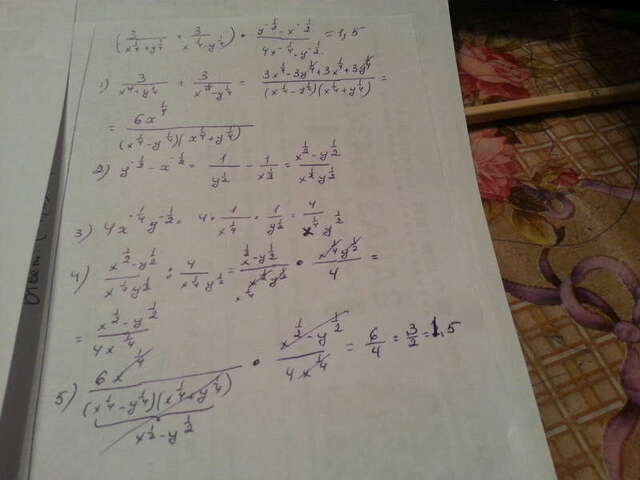 (3/(x^(1/4)+y^(1/4)) + 3/(x^(1/4)-y^(1/4))) • (y^(-1/2) - x^(-1/2))/(4x^(-1/4)·y^(-1/2)) = 1,5
1) 3/(x^(1/4)+y^(1/4)) + 3/(x^(1/4)-y^(1/4)) = (3x^(1/4)-3y^(1/4)+3x^(1/4)+3y^(1/4))/((x^(1/4)-y^(1/4))(x^(1/4)+y^(1/4))) =
= 6x^(1/4)/((x^(1/4)-y^(1/4))(x^(1/4)+y^(1/4)))
2) y^(-1/2) - x^(-1/2) = 1/y^(1/2) - 1/x^(1/2) = (x^(1/2)-y^(1/2))/(x^(1/2)y^(1/2))
3) 4x^(-1/4)y^(-1/2) = 4 • 1/x^(1/4) • 1/y^(1/2) = 4/(x^(1/4)y^(1/2))
4) (x^(1/2)-y^(1/2))/(x^(1/2)y^(1/2)) : 4/(x^(1/4)y^(1/2)) = (x^(1/2)-y^(1/2))/(x^(1/2)y^(1/2)) • (x^(1/4)y^(1/2))/4 =
= (x^(1/2)-y^(1/2))/(4x^(1/4))
5) 6x^(1/4)/((x^(1/4)-y^(1/4))(x^(1/4)+y^(1/4))) • (x^(1/2)-y^(1/2))/(4x^(1/4)) = 6/4 = 3/2 = 1,5
x^(1/2)-y^(1/2)